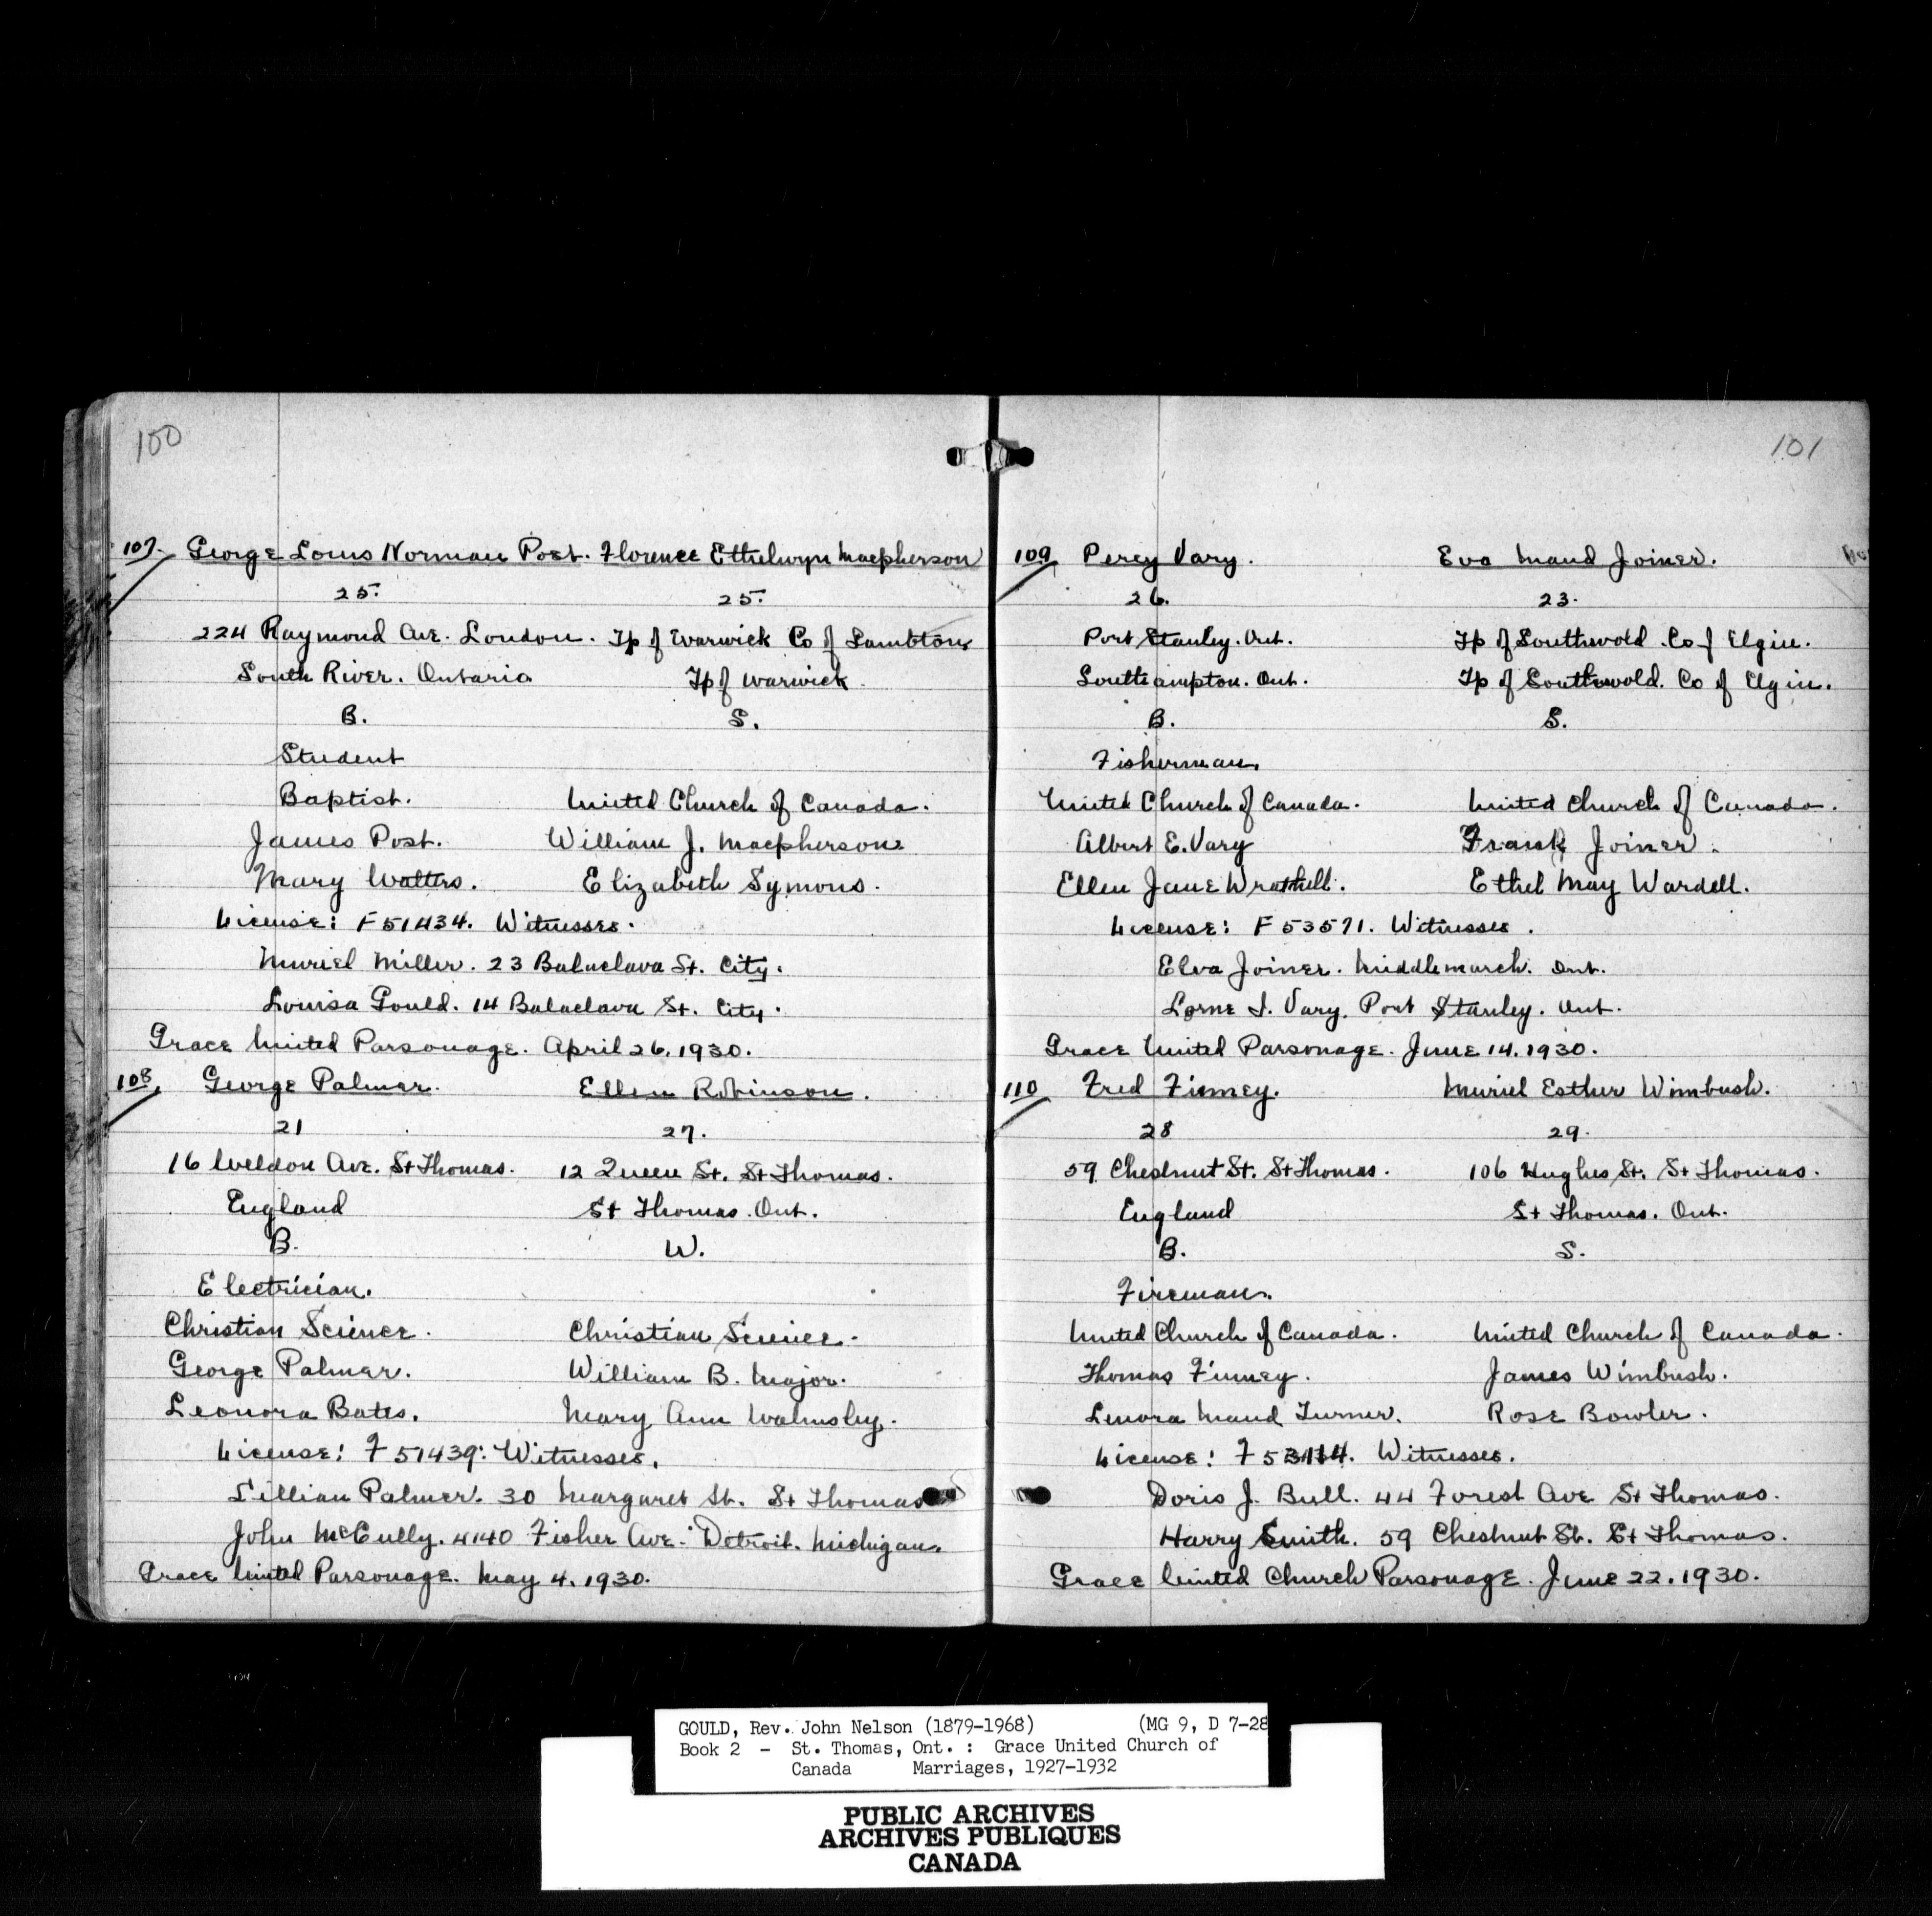 100
107. George Louis Norman Post. Florence Ethelwyn Macpherson
25. 25.
224 Raymond Ave. London. Tp of Warwick Co of Lambton
South River. Ontario Tp of Warwick.
B. S.
Student
Baptist. United Church of Canada.
James Post. William J. Macpherson.
Mary Walters. Elizabeth Symons.
License: F 51434. Witnesses.
Muriel Miller. 23 Balaclava St. City.
Louisa Gould. 14 Balaclava St. City.
Grace United Parsonage. April 26. 1930.
108. George Palmer. Ellen Robinson.
21 27.
16 Weldon Ave. St Thomas. 12 Queen St. St Thomas.
England St Thomas. Ont.
B. W.
Electrician.
Christian Science. Christian Science.
George Palmer. William B. Major.
Leonora Bates. Mary Ann Walmsley.
License: F 51439: Witnesses.
Lillian Palmer. 30 Margaret St. St Thomas
John McCully. 4140 Fisher Ave. Detroit. Michigan.
Grace United Parsonage. May 4. 1930.
101
109 Percy Vary. Eva Maud Joiner.
26. 23.
Port Stanley. Ont. Tp of Southwold. Co of Elgin.
Southampton. Ont. Tp of Southwold. Co of Elgin.
B. S.
Fisherman.
United Church of Canada. United Church of Canada.
Albert E. Vary Frank Joiner.
Ellen Jane Wrathell. Ethel May Wardell.
License: F 53571. Witnesses.
Elva Joiner. Middlemarch. Ont.
Lorne I. Vary. Port Stanley. Ont.
Grace United Parsonage. June 14. 1930.
110 Fred Finney. Muriel Esther Wimbush.
28 29.
59 Chestnut St. St Thomas. 106 Hughes St. St Thomas.
England St Thomas. Ont.
B. S.
Fireman.
United Church of Canada. United Church of Canada.
Thomas Finney. James Wimbush.
Lenora Maud Turner. Rose Bowler.
License: Witnesses.
Doris J. Bull. 44 Forest Ave St Thomas.
Harry Smith. 59 Chestnut St. St Thomas.
Grace United Church Parsonage. June 22. 1930.
GOULD, Rev. John Nelson (1879-1968) (MG 9, D 7-28
Book 2 - St. Thomas, Ont. : Grace United Church of
Canada Marriages, 1927-1932
PUBLIC ARCHIVES
ARCHIVES PUBLIQUES
CANADA